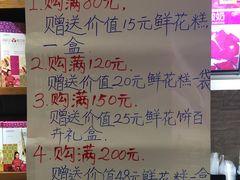 1.购满80元,
赠送价值15元鲜花糕
一盒
2.购满120元.
赠送价值20元鲜花糕一袋
3.购满150元.
赠送价值25元鲜花饼百
升礼盒.
4.购满200元.
赠送价值48元鲜花糕一盒